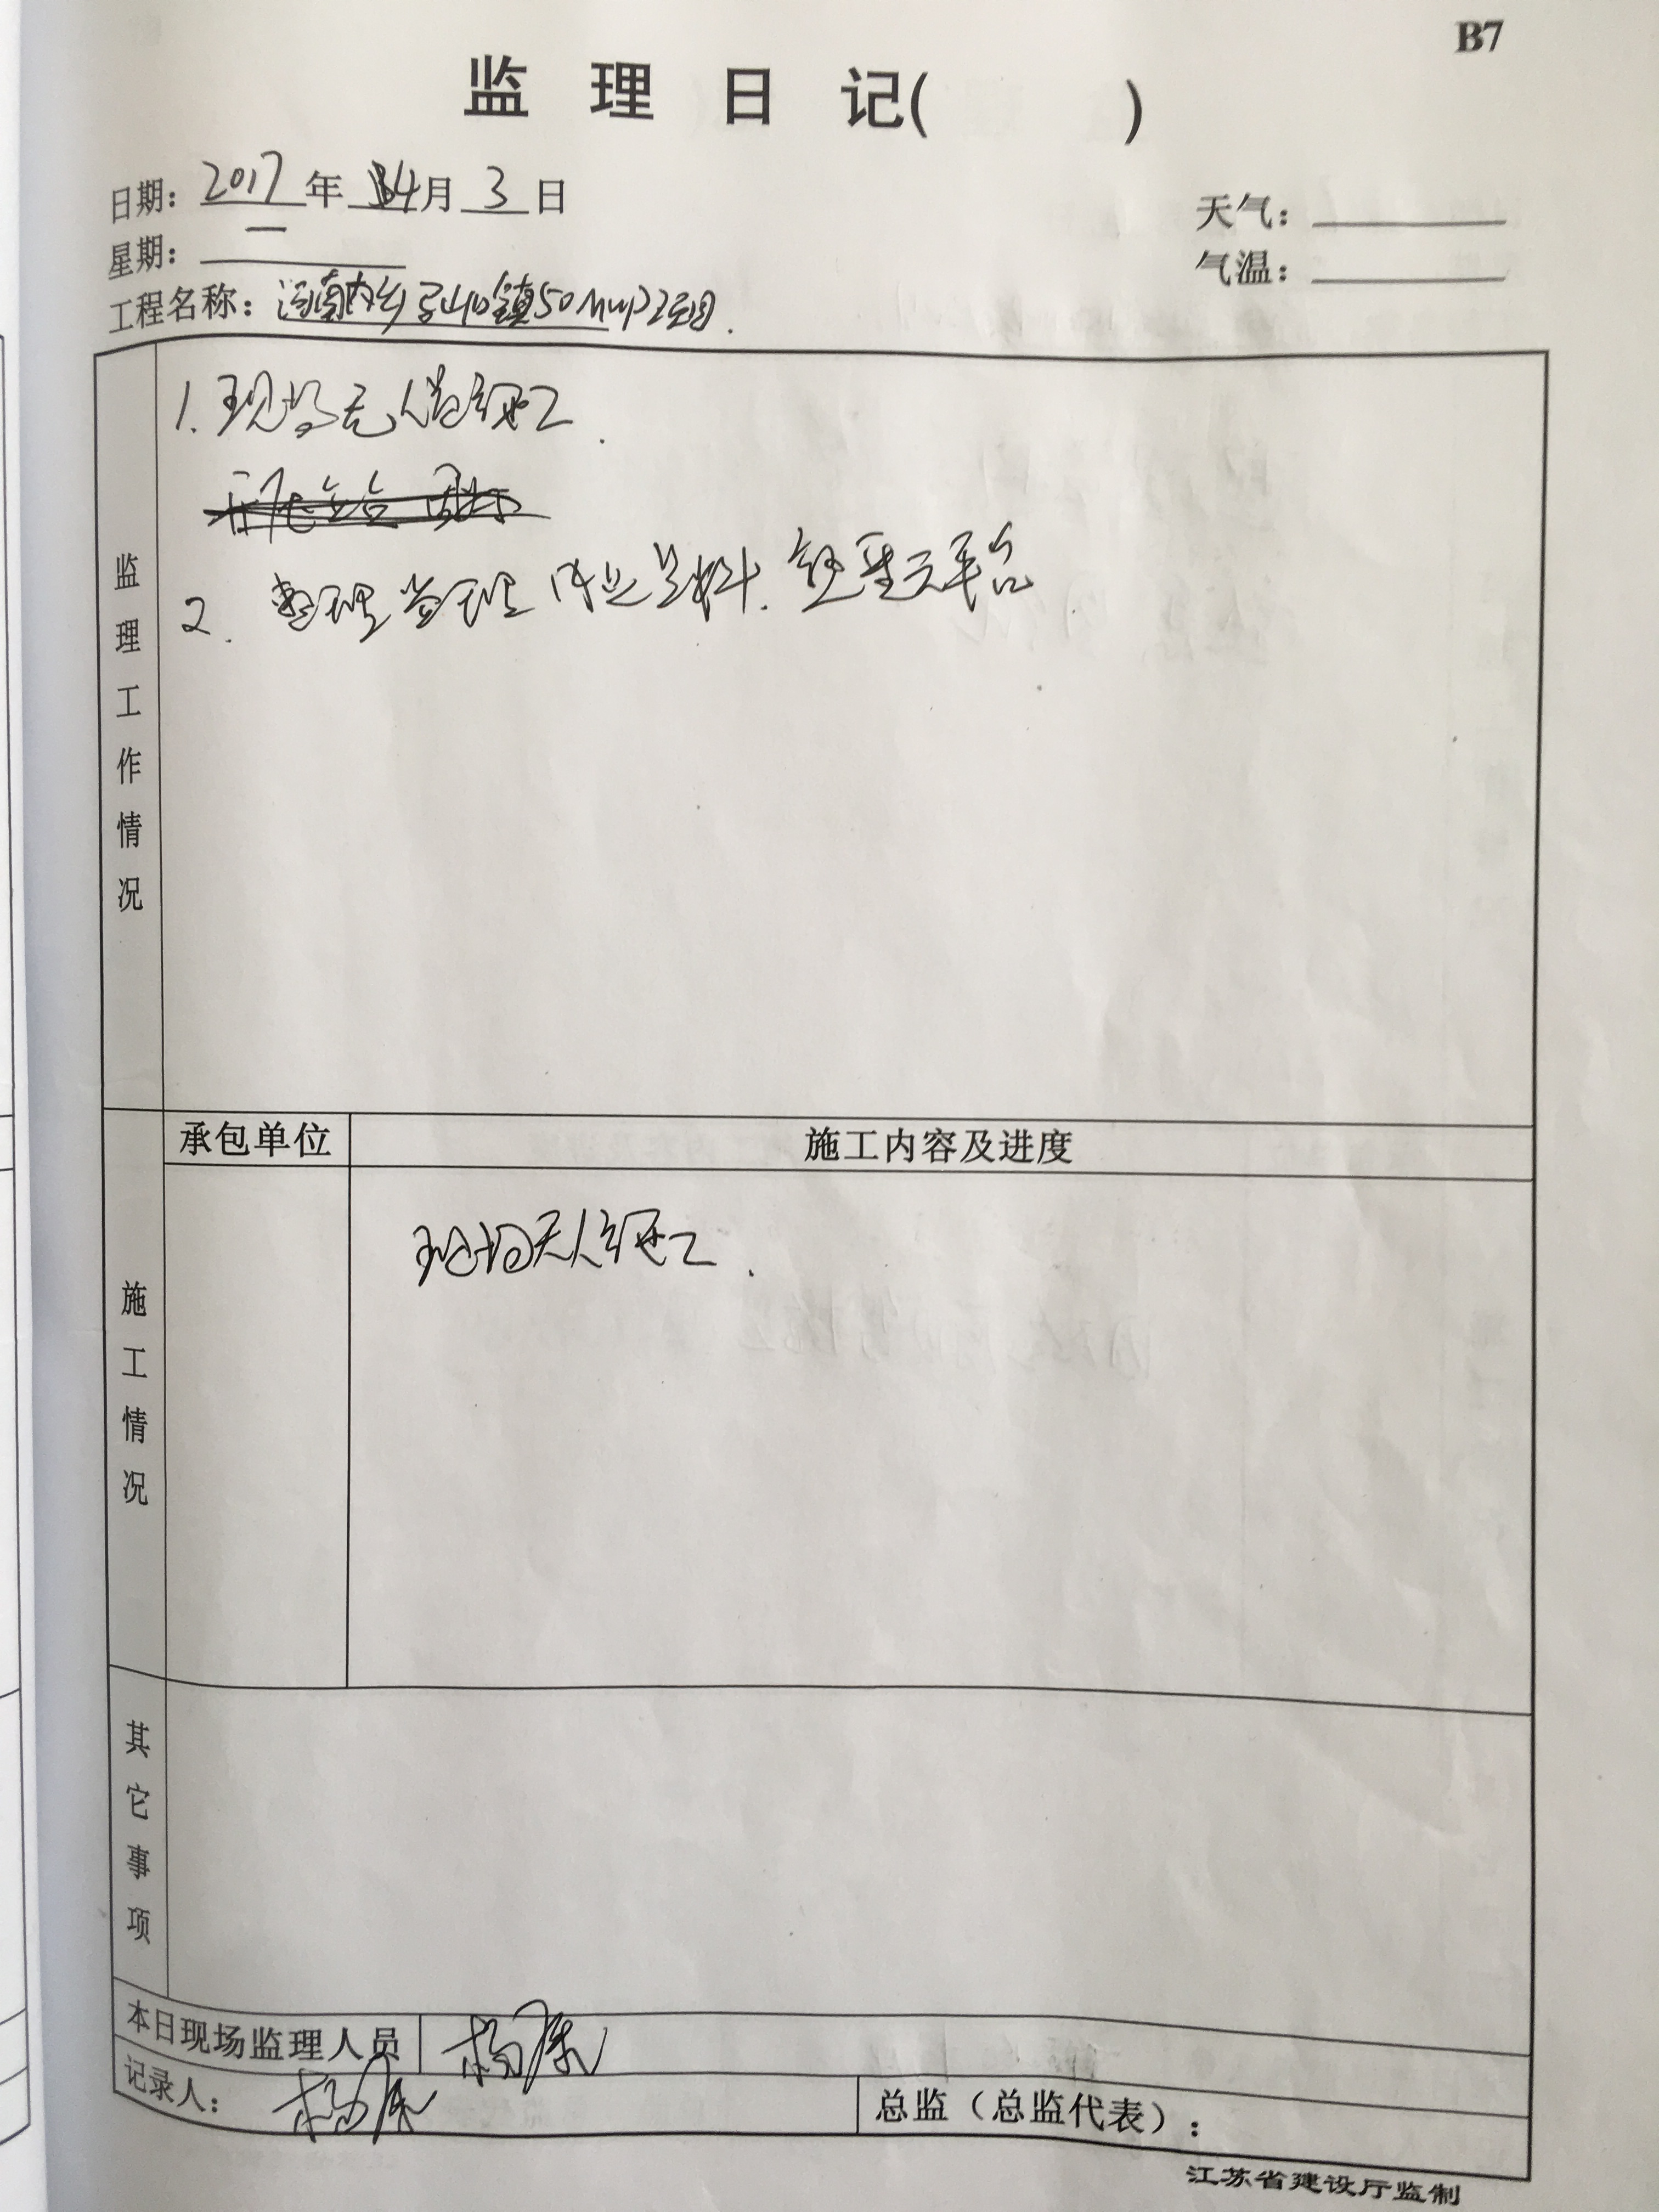 B7
监理日记( )
日期: 2017 年 4月 3 日
天气:
星期: 一
气温:
工程名称: 河南内乡 镇50MWP 项目.
监理工作情况
1. 现场无人 施工.
2. 整理监理内业资料.
承包单位 施工内容及进度
施工情况
现场无人施工.
其它事项
本日现场监理人员 杨康
记录人: 杨康
总监(总监代表):
江苏省建设厅监制